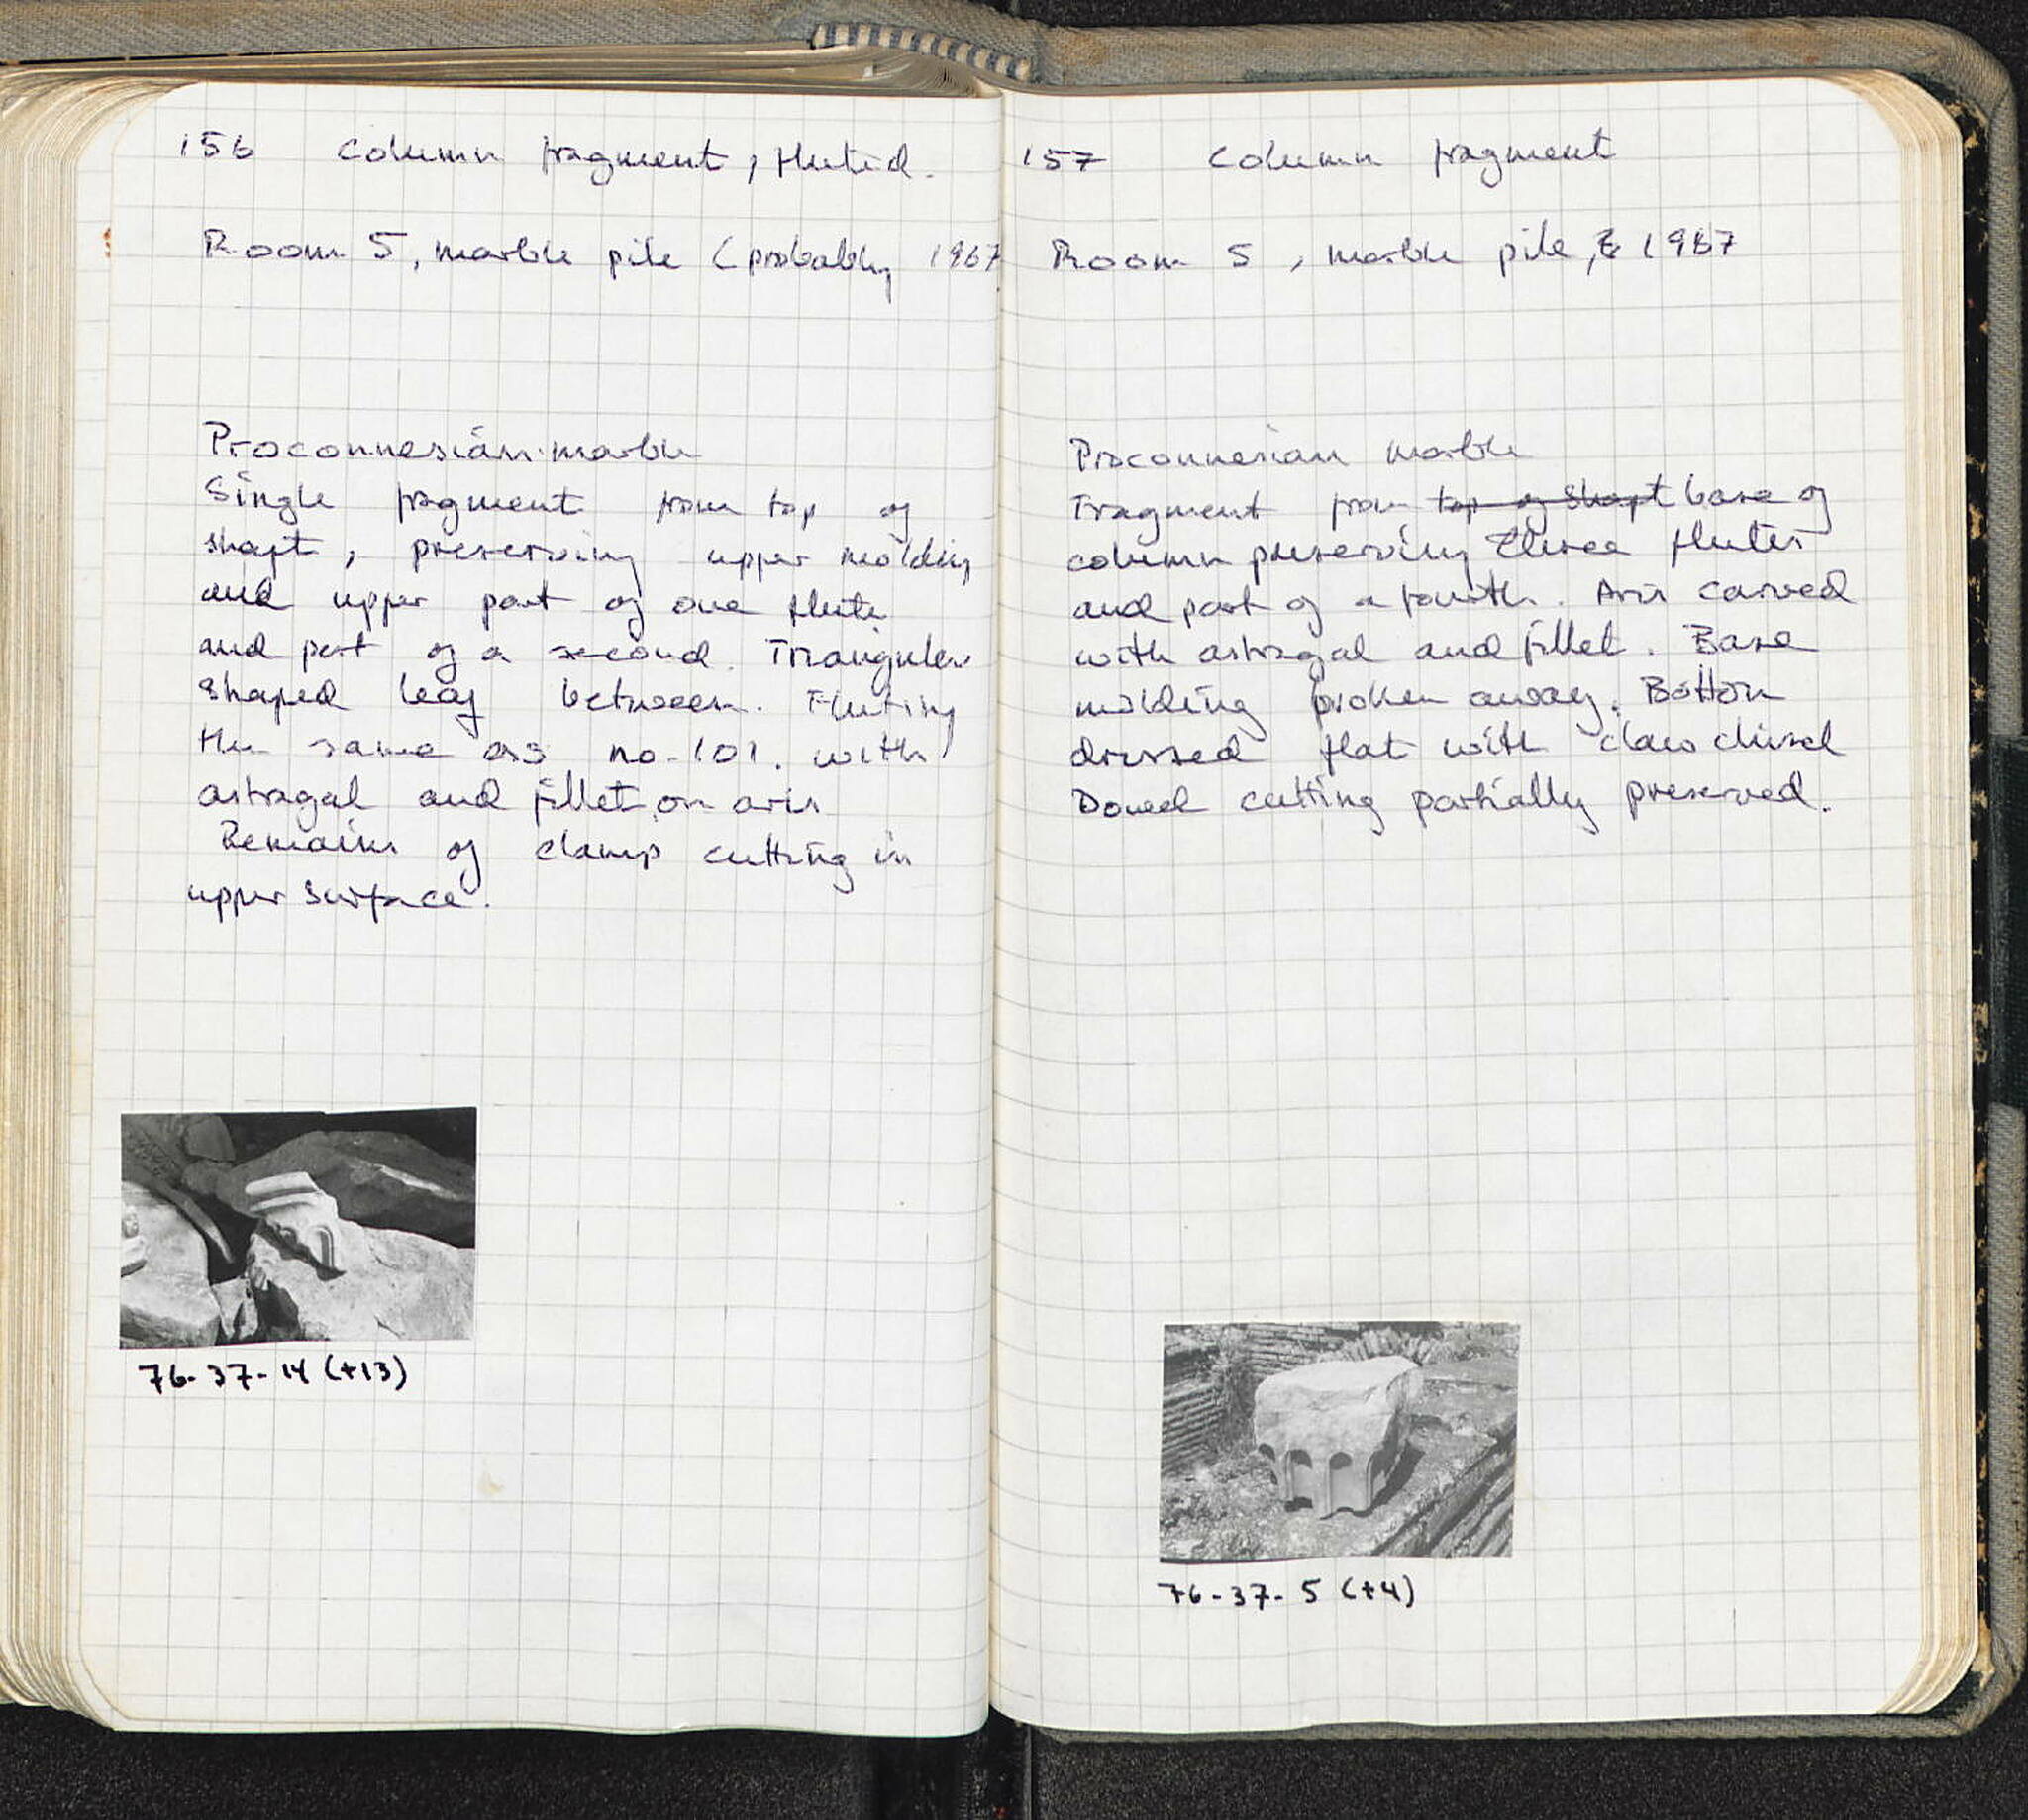 156 Column fragment, fluted.
Room 5, marble pile (probably 1967
Proconnesian marble
Single fragment from top of
shaft, preserving upper molding
and upper part of one flute
and part of a second. Triangular
shaped leaf between. Fluting
the same as no. 101. with
astragal and fillet on aris
Remains of clamp cutting in
upper surface.
76-37-14 (+13)
157 Column fragment
Room 5, marble pile, 1967
Proconnesian marble
Fragment from top of shaft base of
column preserving three flutes
and part of a fourth. Aris carved
with astragal and fillet. Base
molding broken away. Bottom
dressed flat with claw chisel
Dowel cutting partially preserved.
76-37-5 (+4)